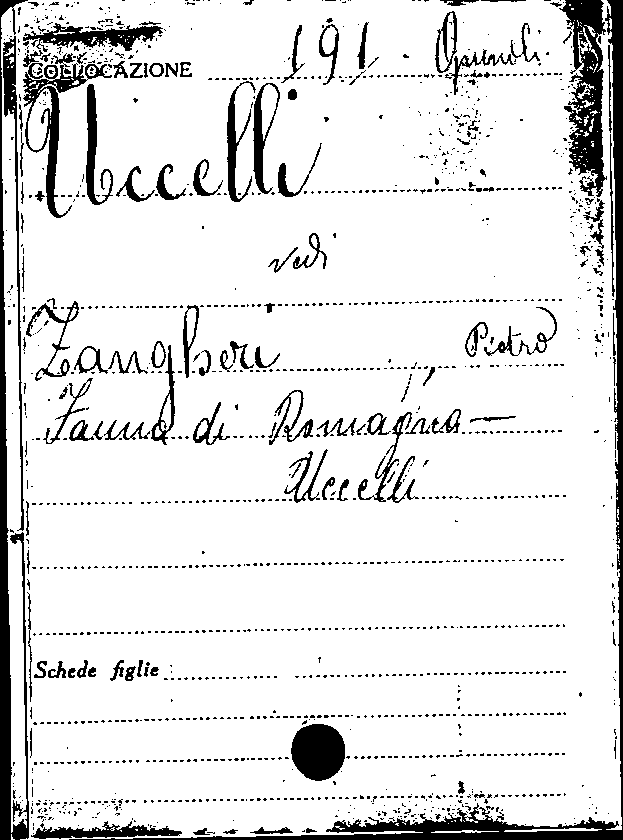 COLLOCAZIONE 191. Opuscoli.
Uccelli
vedi
Zangheri Pietro
Fauna di Romagna —
Uccelli
Schede figlie